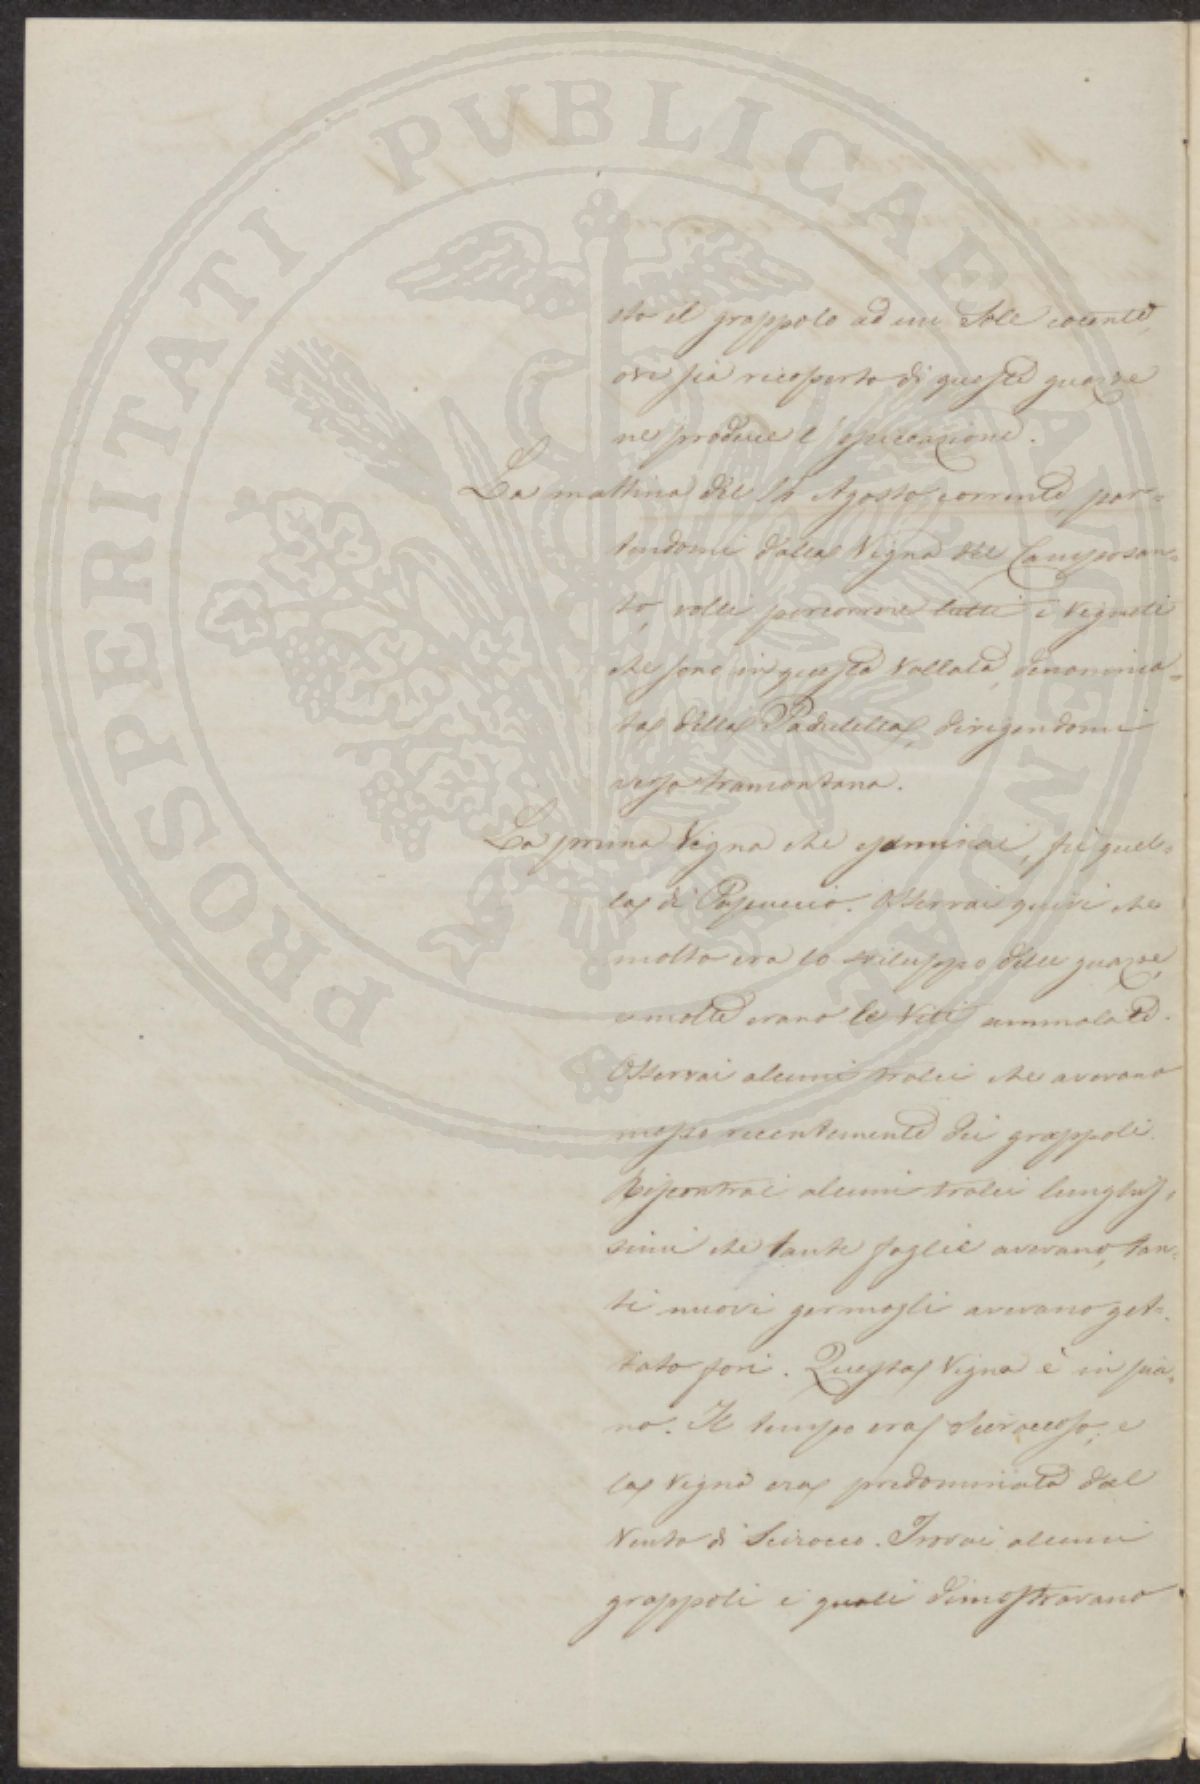 PROSPERITATI PUBLICAE AUGENDAE
sto il grappolo ad un Sole cocente,
ove sia ricoperto di queste guazze
ne produce l'essiccazione.
La mattina del 16 Agosto corrente, par=
tendomi dalla Vigna del Camposan=
to, volli percorrere tutti i Vigneti
che sono in questa Vallata, denomina=
ta della Padulella, dirigendomi
verso tramontana.
La prima Vigna che esaminai, fù quel=
la di Pasquccio. Osservai quivi che
molto era lo sviluppo delle guazze,
e molte erano le Viti ammalate.
Osservai alcuni tralci che avevano
messo recentemente dei grappoli.
Riscontrai alcuni tralci lunghis=
simi che tante foglie avevano, tan=
ti nuovi germogli avevano get=
tato fori. Questa Vigna è in pia=
no. Il tempo era sciroccoso, e
la Vigna era predominata dal
Vento di Scirocco. Trovai alcuni
grappoli i quali dimostravano